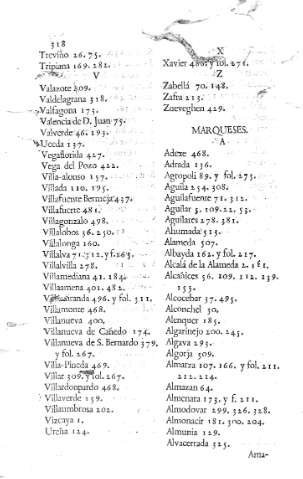 318
Treviño 26. 75.
Tripiana 169. 282.
V
Valazote 309.
Valdelagrana 318.
Valfagona 173.
Valencia de D. Juan 75.
Valverde 46. 193.
Uceda 137.
Vegaflorida 427.
Vega del Pozo 422.
Villa-alonso 157.
Villada 110. 195.
Villafuente Bermeja 437
Villafuerte 481.
Villagonzalo 498.
Villalobos 36. 250.
Villalonga 160.
Villalva 71. 312. y f. 265.
Villalvilla 278.
Villamediana 41. 184.
Villamena 401. 482.
Villamiranda 496. y fol. 311.
Villamonte 468.
Villanueva 400.
Villanueva de Cañedo 174.
Villanueva de S. Bernardo 379,
y fol. 267.
Villa-Pineda 469.
Villar 309. y fol. 267.
Villardonpardo 468.
Villaverde 159.
Villaumbrosa 202.
Vizcaya 1.
Ureña 124.
X
Xavier 486. y fol. 271.
Z
Zabellá 70. 148.
Zafra 213.
Zueveghen 429.
MARQUESES.
A
Adeze 468.
Adrada 136.
Agropoli 89. y fol. 275.
Aguila 254. 308.
Aguilafuente 71. 312.
Aguilar 3. 109. 22. 53.
Aguilares 278. 381.
Ahumada 213.
Alameda 507.
Albayda 162. y fol. 217.
Alcalá de la Alameda 2. 181.
Alcañices 56. 109. 112. 139.
153.
Alcocebar 37. 495.
Alconchel 30.
Alenquer 185.
Algarinejo 200. 243.
Algava 293.
Algorja 509.
Almarza 107. 166. y fol. 211.
212. 214.
Almazan 64.
Almenara 173. y f. 211.
Almodovar 299. 326. 328.
Almonacir 181. 300. 204.
Almunia 129.
Alvacerrada 325.
Ama-